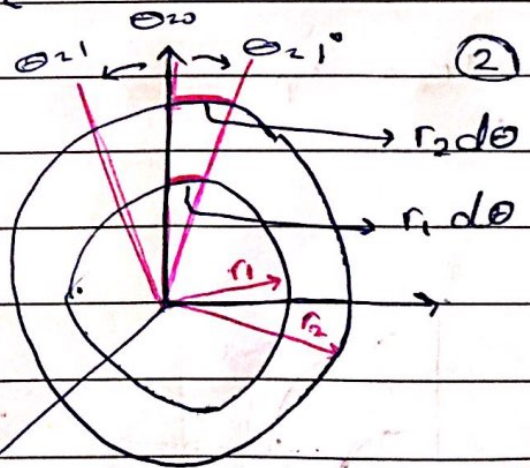 θ=0
θ=1
θ=1°
②
r₂dθ
r₁dθ
r₁
r₂